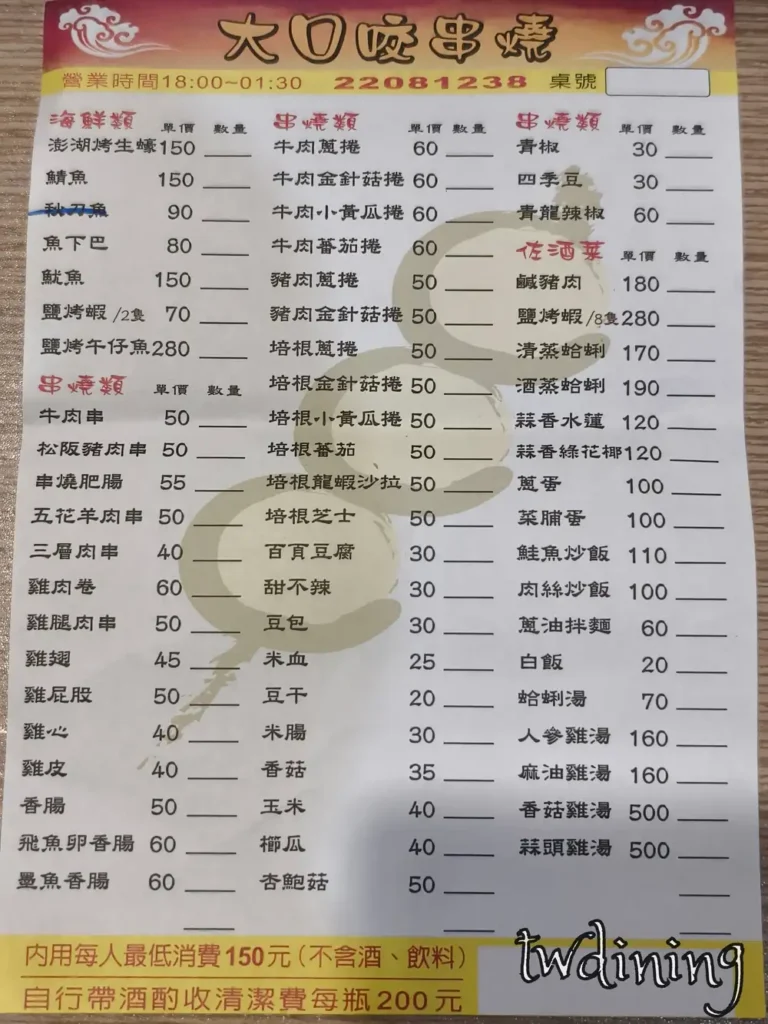 大口咬串燒
營業時間18:00~01:30 22081238 桌號
海鮮類 單價 數量
澎湖烤生蠔150
鯖魚 150
秋刀魚 90
魚下巴 80
魷魚 150
鹽烤蝦/2隻 70
鹽烤午仔魚280
串燒類 單價 數量
牛肉串 50
松阪豬肉串 50
串燒肥腸 55
五花羊肉串 50
三層肉串 40
雞肉卷 60
雞腿肉串 50
雞翅 45
雞屁股 50
雞心 40
雞皮 40
香腸 50
飛魚卵香腸 60
墨魚香腸 60
串燒類 單價 數量
牛肉蔥捲 60
牛肉金針菇捲 60
牛肉小黃瓜捲 60
牛肉蕃茄捲 60
豬肉蔥捲 50
豬肉金針菇捲 50
培根蔥捲 50
培根金針菇捲 50
培根小黃瓜捲 50
培根蕃茄 50
培根龍蝦沙拉 50
培根芝士 50
百頁豆腐 30
甜不辣 30
豆包 30
米血 25
豆干 20
米腸 30
香菇 35
玉米 40
櫛瓜 40
杏鮑菇 50
串燒類 單價 數量
青椒 30
四季豆 30
青龍辣椒 60
佐酒菜 單價 數量
鹹豬肉 180
鹽烤蝦/8隻280
清蒸蛤蜊 170
酒蒸蛤蜊 190
蒜香水蓮 120
蒜香綠花椰120
蔥蛋 100
菜脯蛋 100
鮭魚炒飯 110
肉絲炒飯 100
蔥油拌麵 60
白飯 20
蛤蜊湯 70
人參雞湯 160
麻油雞湯 160
香菇雞湯 500
蒜頭雞湯 500
內用每人最低消費150元(不含酒、飲料)
自行帶酒酌收清潔費每瓶200元
twdining